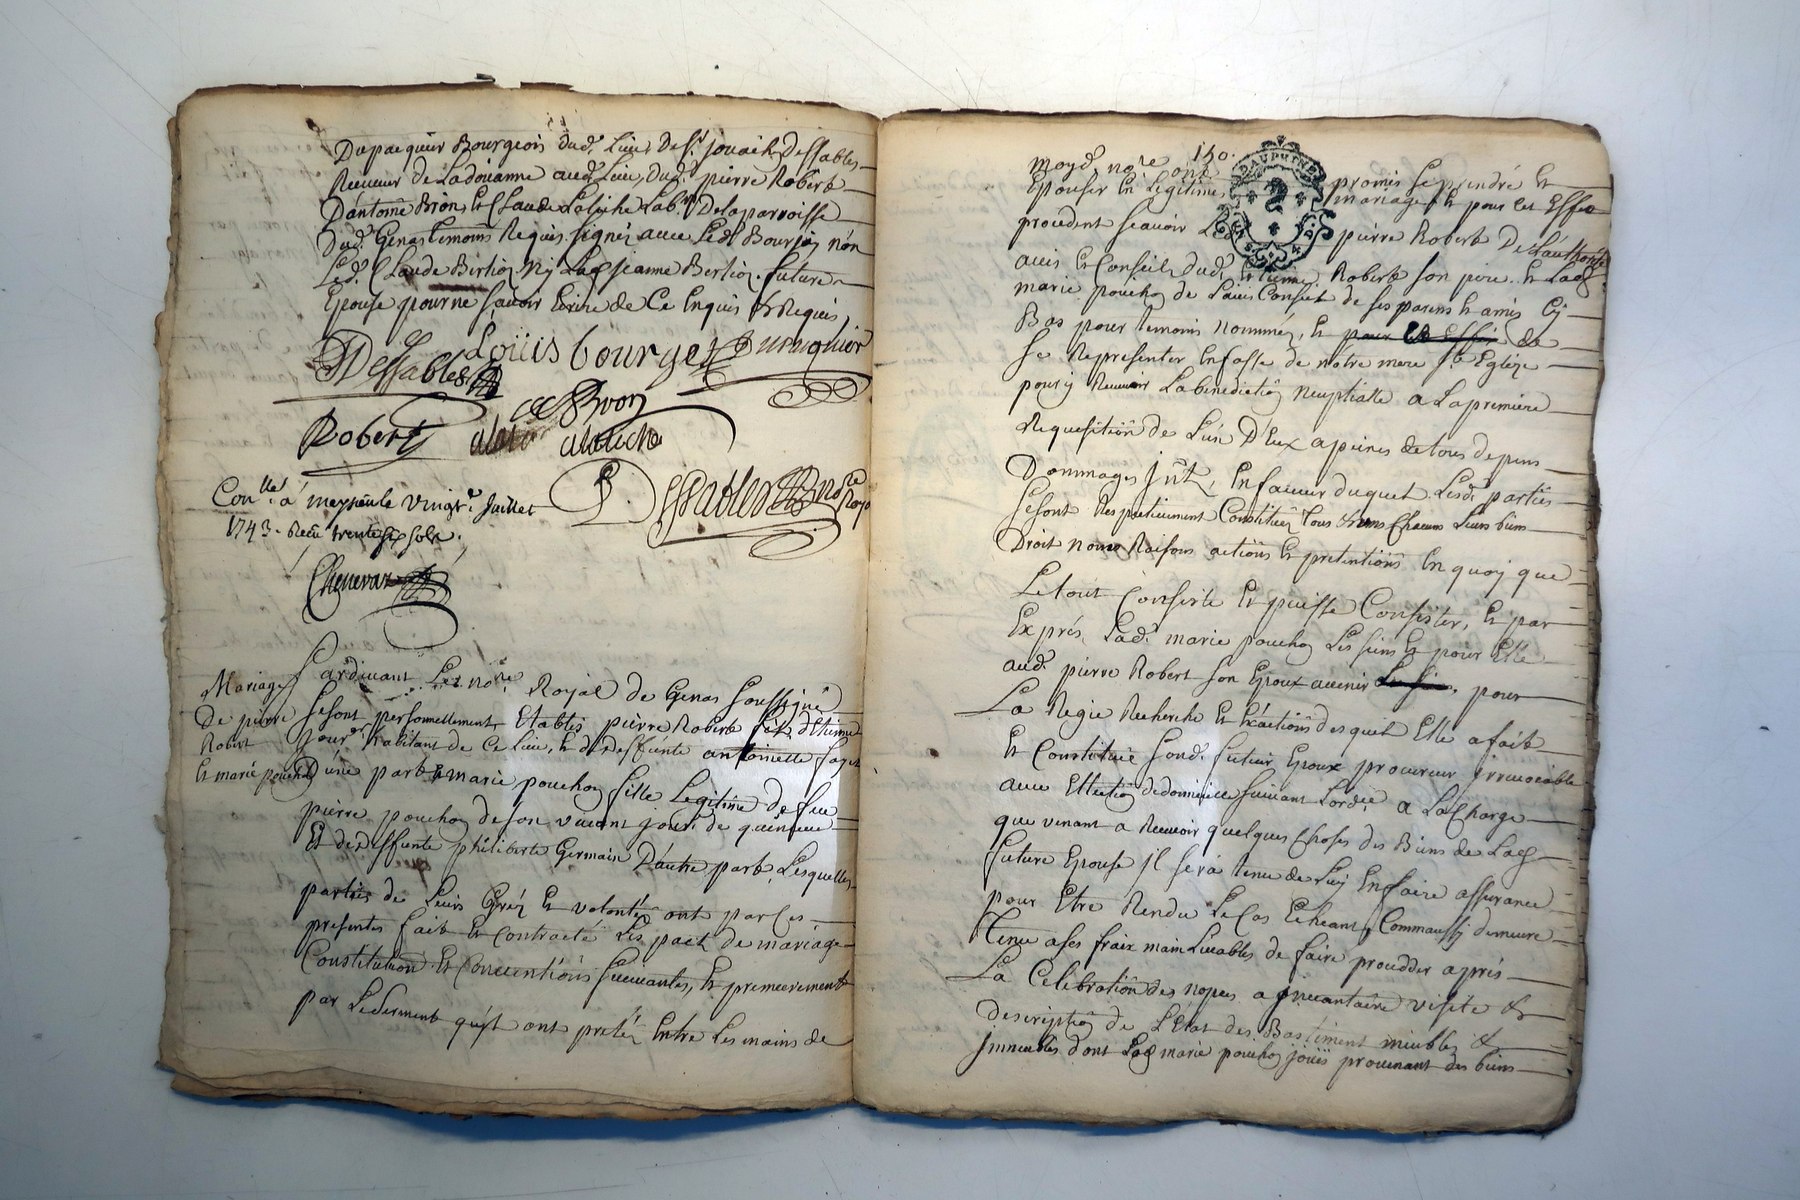 Dupacquier Bourgeois dud. Lieu, De Sr. jouach Dessables
Receveur de La doüanne aud. Lieu, dud. pierre Robert
D'antoine Bron, et Claude Lab. De la parroisse
Dud. Genas temoins Requis signés avec Led. Bourjéy non
Led. Claude Bertion Ny Lad. jeanne Bertion future
Epouse pour ne sçavoir Ecrire de Ce Enquis & Requis
Dessables Loüis bourgey Dupaquier
Robert Bron
P. Dessables nore. Royal
Conllé. à meyzeu le vingte. Juillet
1743. Receu trente six sols.
Chenevaz
Mariage
De pierre
Robert
et marie pouchon
Pardevant Le nore. Royal de Genas soussigné
se sont personnellement Etablis pierre Robert fils d'Etienne
jour. habitant de Ce Lieu, et de deffunte antoinette
D'une part et marie pouchon fille Legitime de feu
pierre pouchon de son vivant jour. de
Et de deffunte philiberte Germain D'autre part, Lesquelles
parties de Leurs Gréz et volontéz ont par Ces
presentes fait et contracté Les pact de mariage
Constitution et Conventions suivantes, et premierement
par Le serment qu'ils ont preté Entre Les mains de
150.
DAUPHINE
moyd. nore. ont promis se prendre et
Epouser En Legitime mariage et pour cet Effet
procedent sçavoir Led. pierre Robert De L'authorité
avis et Conseil dud. Etienne Robert son pere. et Lad.
marie pouchon de L'avis Conseil de ses parens et amis Cy
Bas pour temoins nommés, et de
se Representer En fasse de nôtre mere Ste. Eglize
pour y Recevoir La benediction nuptialle a La premiere
Requesition de L'un D'Eux a peines de tous depens
Dommages jnt., En faveur duquel Lesd. parties
se sont Respectivement Constituéz tous & uns Chacuns Leurs biens
Droit noms Raisons actions et pretentions En quoy que
Le tout Consiste et puisse Consister, et par
Exprés Lad. marie pouchon Les siens et pour Elle
aud. pierre Robert son Epoux avenir pour
La Regie Recherche et Exactions desquels Elle a fait
et Constitué sond. futur Epoux procureur jrrevocable
avec Ellection de domicille suivant Lord.ce a La Charge
que venant a Recevoir quelques Choses des Biens de Lad.
future Epouse jl sera tenu de Luy En faire assurance
pour Etre Rendu Le Cas Echeant, Comm'aussy demeure
Tenu a ses fraix main Levables de faire proceder aprés
La Celebration des nopces a jnventaire visite &
description de L'Etat des Bastiment meubles &
jmmeubles dont Lad. marie pouchon joüis provenant des biens